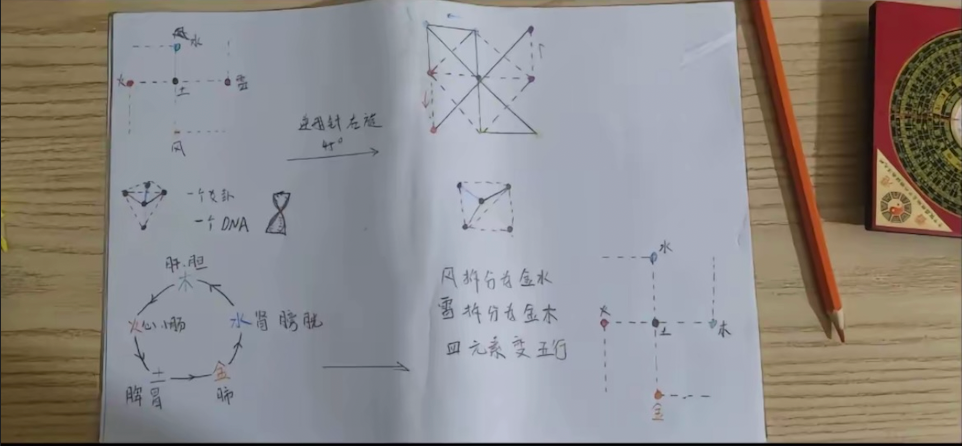 水
火
土
雷
风
逆时针右旋
45°
一个爻卦
一个DNA
肝、胆
木
火心小肠
水肾膀胱
土
脾胃
金
肺
风拆分为金水
雷拆分为金木
四元素变五行
水
火
土
木
金